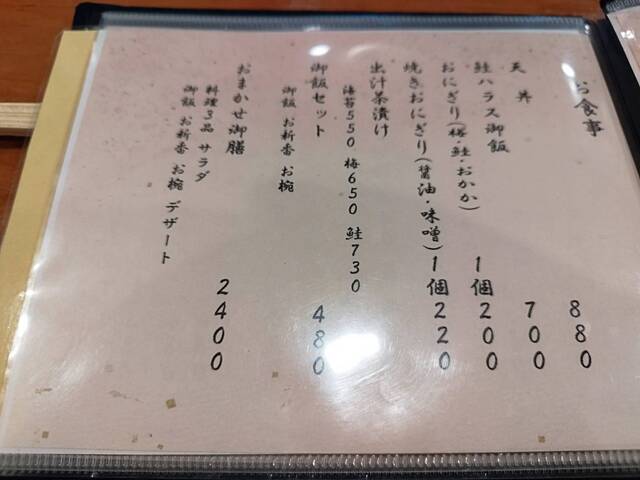 お食事
天丼 880
鮭ハラス御飯 700
おにぎり(梅・鮭・おかか) 1個200
焼きおにぎり(醤油・味噌) 1個220
出汁茶漬け
海苔550 梅650 鮭730
御飯セット 480
御飯 お新香 お椀
おまかせ御膳 2400
料理3品 サラダ
御飯 お新香 お椀 デザート